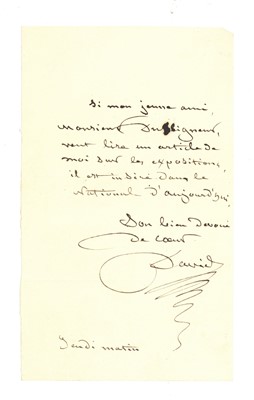 Si mon jeune ami,
Monsieur DuSeigneur,
veut lire un article de
moi sur les expositions,
il est inséré dans le
National d'aujourd'hui.
Son bien dévoué
de cœur
David
Jeudi matin